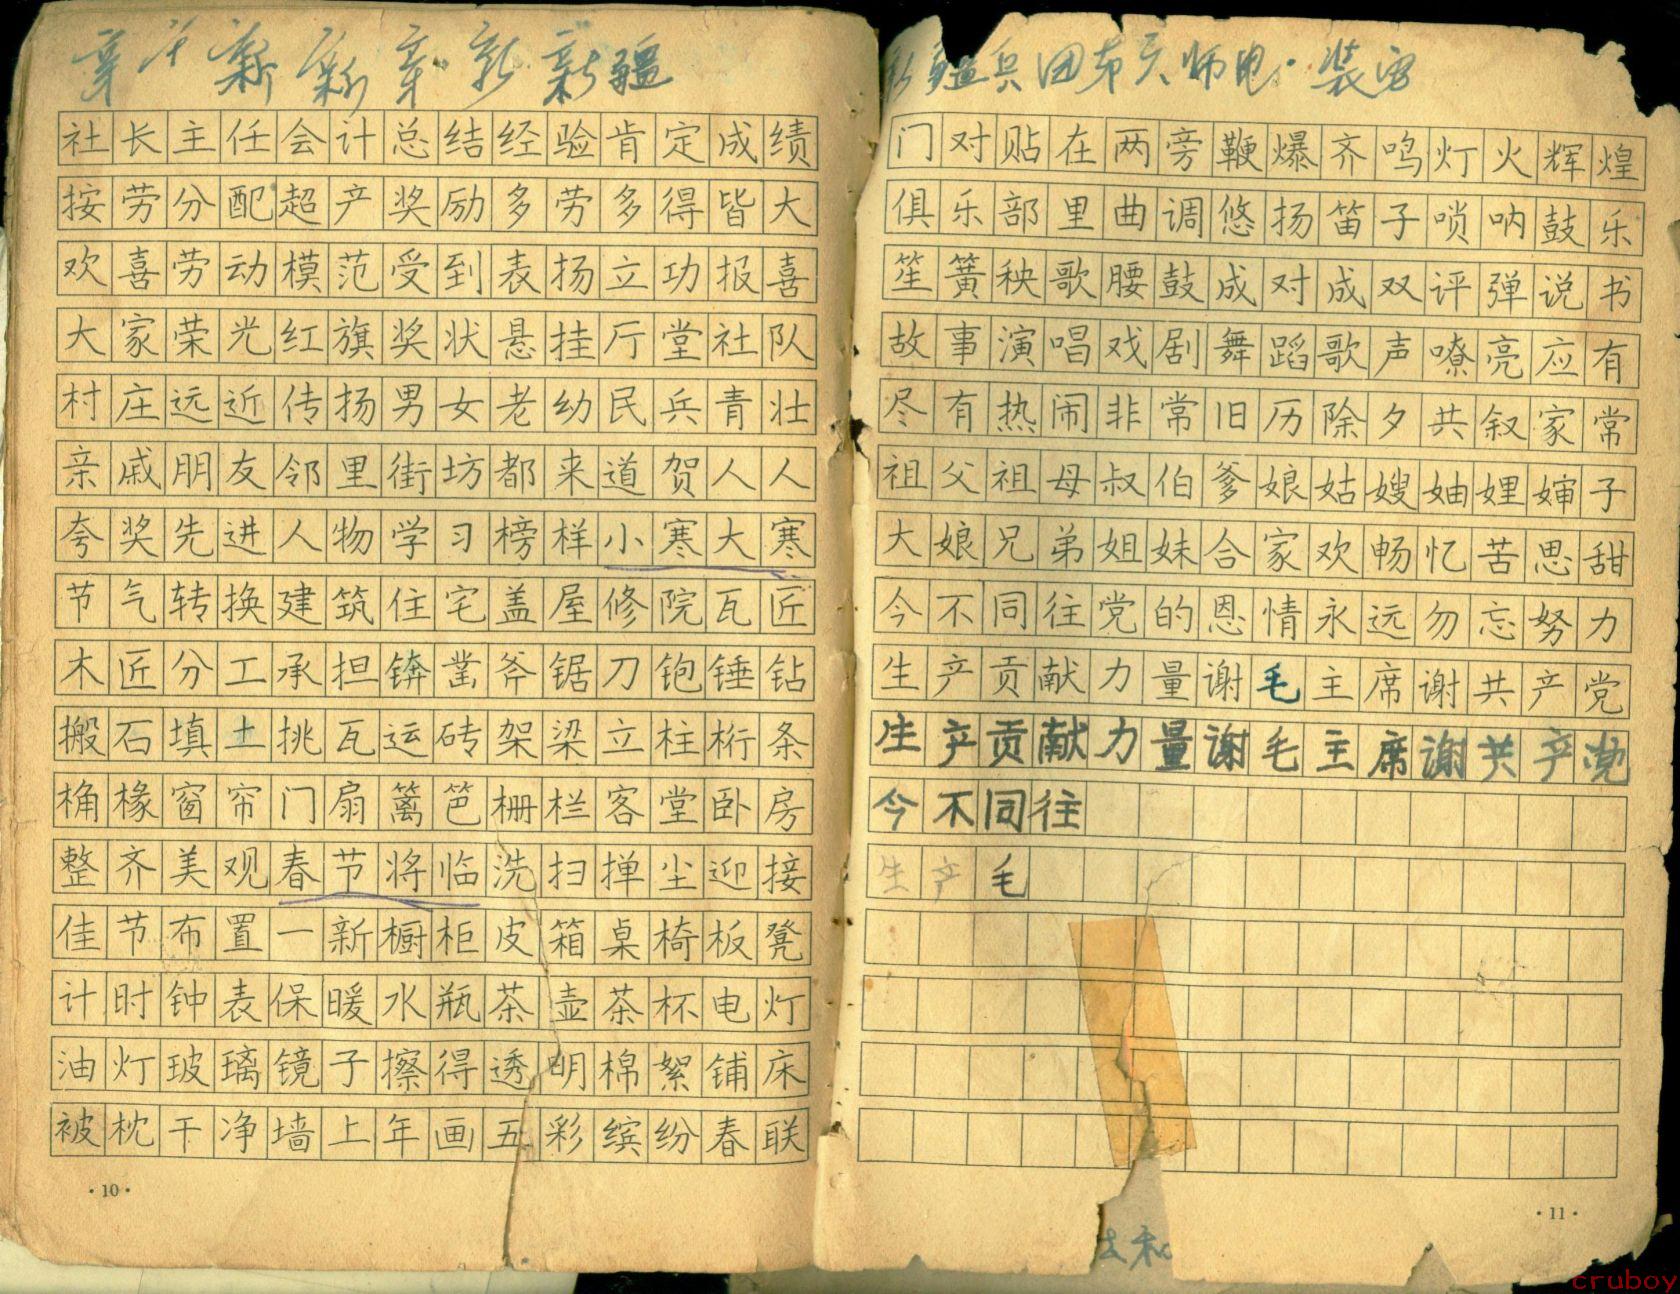 新 新 新疆
社长主任会计总结经验肯定成绩
按劳分配超产奖励多劳多得皆大
欢喜劳动模范受到表扬立功报喜
大家荣光红旗奖状悬挂厅堂社队
村庄远近传扬男女老幼民兵青壮
亲戚朋友邻里街坊都来道贺人人
夸奖先进人物学习榜样小寒大寒
节气转换建筑住宅盖屋修院瓦匠
木匠分工承担锛凿斧锯刀铇锤钻
搬石填土挑瓦运砖架梁立柱桁条
桷椽窗帘门扇篱笆栅栏客堂卧房
整齐美观春节将临洗扫掸尘迎接
佳节布置一新橱柜皮箱桌椅板凳
计时钟表保暖水瓶茶壶茶杯电灯
油灯玻璃镜子擦得透明棉絮铺床
被枕干净墙上年画五彩缤纷春联
·10·
疆兵团 师电·装
门对贴在两旁鞭爆齐鸣灯火辉煌
俱乐部里曲调悠扬笛子唢呐鼓乐
笙簧秧歌腰鼓成对成双评弹说书
故事演唱戏剧舞蹈歌声嘹亮应有
尽有热闹非常旧历除夕共叙家常
祖父祖母叔伯爹娘姑嫂妯娌婶子
大娘兄弟姐妹合家欢畅忆苦思甜
今不同往党的恩情永远勿忘努力
生产贡献力量谢毛主席谢共产党
生产贡献力量谢毛主席谢共产党
今不同往
生产毛
·11·
和
cruboy